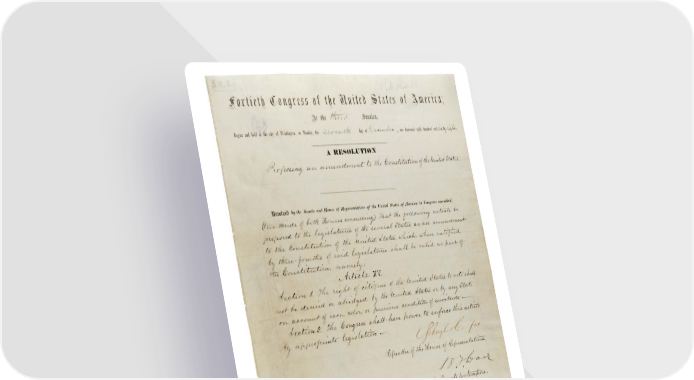 Fortieth Congress of the United States of America;
At the third Session,
Begun and held at the city of Washington, on Monday, the seventh day of December, one thousand eight hundred and sixty-eight.
A RESOLUTION
Proposing an amendment to the Constitution of the United States.
Resolved by the Senate and House of Representatives of the United States of America in Congress assembled,
(two-thirds of both Houses concurring) That the following article be
proposed to the legislatures of the several States as an amendment
to the Constitution of the United States which, when ratified
by three-fourths of said legislatures shall be valid as part of
the Constitution, namely:
Article XV.
Section 1. The right of citizens of the United States to vote shall
not be denied or abridged by the United States or by any State
on account of race, color, or previous condition of servitude—
Section 2. The Congress shall have power to enforce this article
by appropriate legislation—
Speaker of the House of Representatives